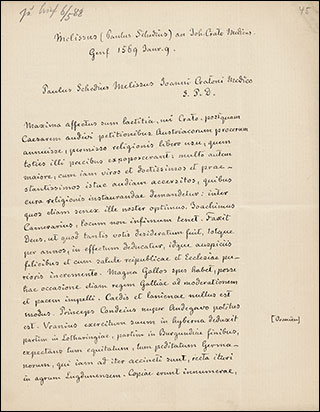 45
Melissus (Paulus Schedius) an Joh. Crato Medicus.
Genf 1569 Januar 9.
Paulus Schedius Melissus Ioanni Cratoni Medico
S. P. D.
Maxima affectus sum laetitia, mi Crato, postquam
Caesarem audivi petitionibus Austriacorum procerum
annuisse, permisso religionis libero usu, quem
toties illi precibus expoposcerant: multo autem
maiore, cum iam viros et doctissimos et prae-
stantissimos istuc audiam accersitos, quibus
cura religionis instaurandae demandetur: inter
quos etiam senex ille noster optimus, Ioachimus
Camerarius, locum non infimum tenet. Faxit
Deus, ut quod tantis votis desideratum fuit, totque
per annos, in effectum deducatur, idque auspiciis
felicibus et cum salute reipublicae et Ecclesiae pu-
rioris incremento. Magna Gallos spes habet, posse
hac occasione etiam regem Galliae ad moderationem
et pacem impelli. Caedis et lanienae nullus est
modus. Princeps Condeius nuper Andegavo potitus
est. Vranius exercitum suum in hyberna deduxit
partim in Lotharingiae, partim in Burgundiae finibus,
expectans tum equitatum, tum peditatum Germa-
norum, qui iam ad iter accincti sunt, recta ituri
in agrum Lugdunensem. Copiae erunt innumerae,